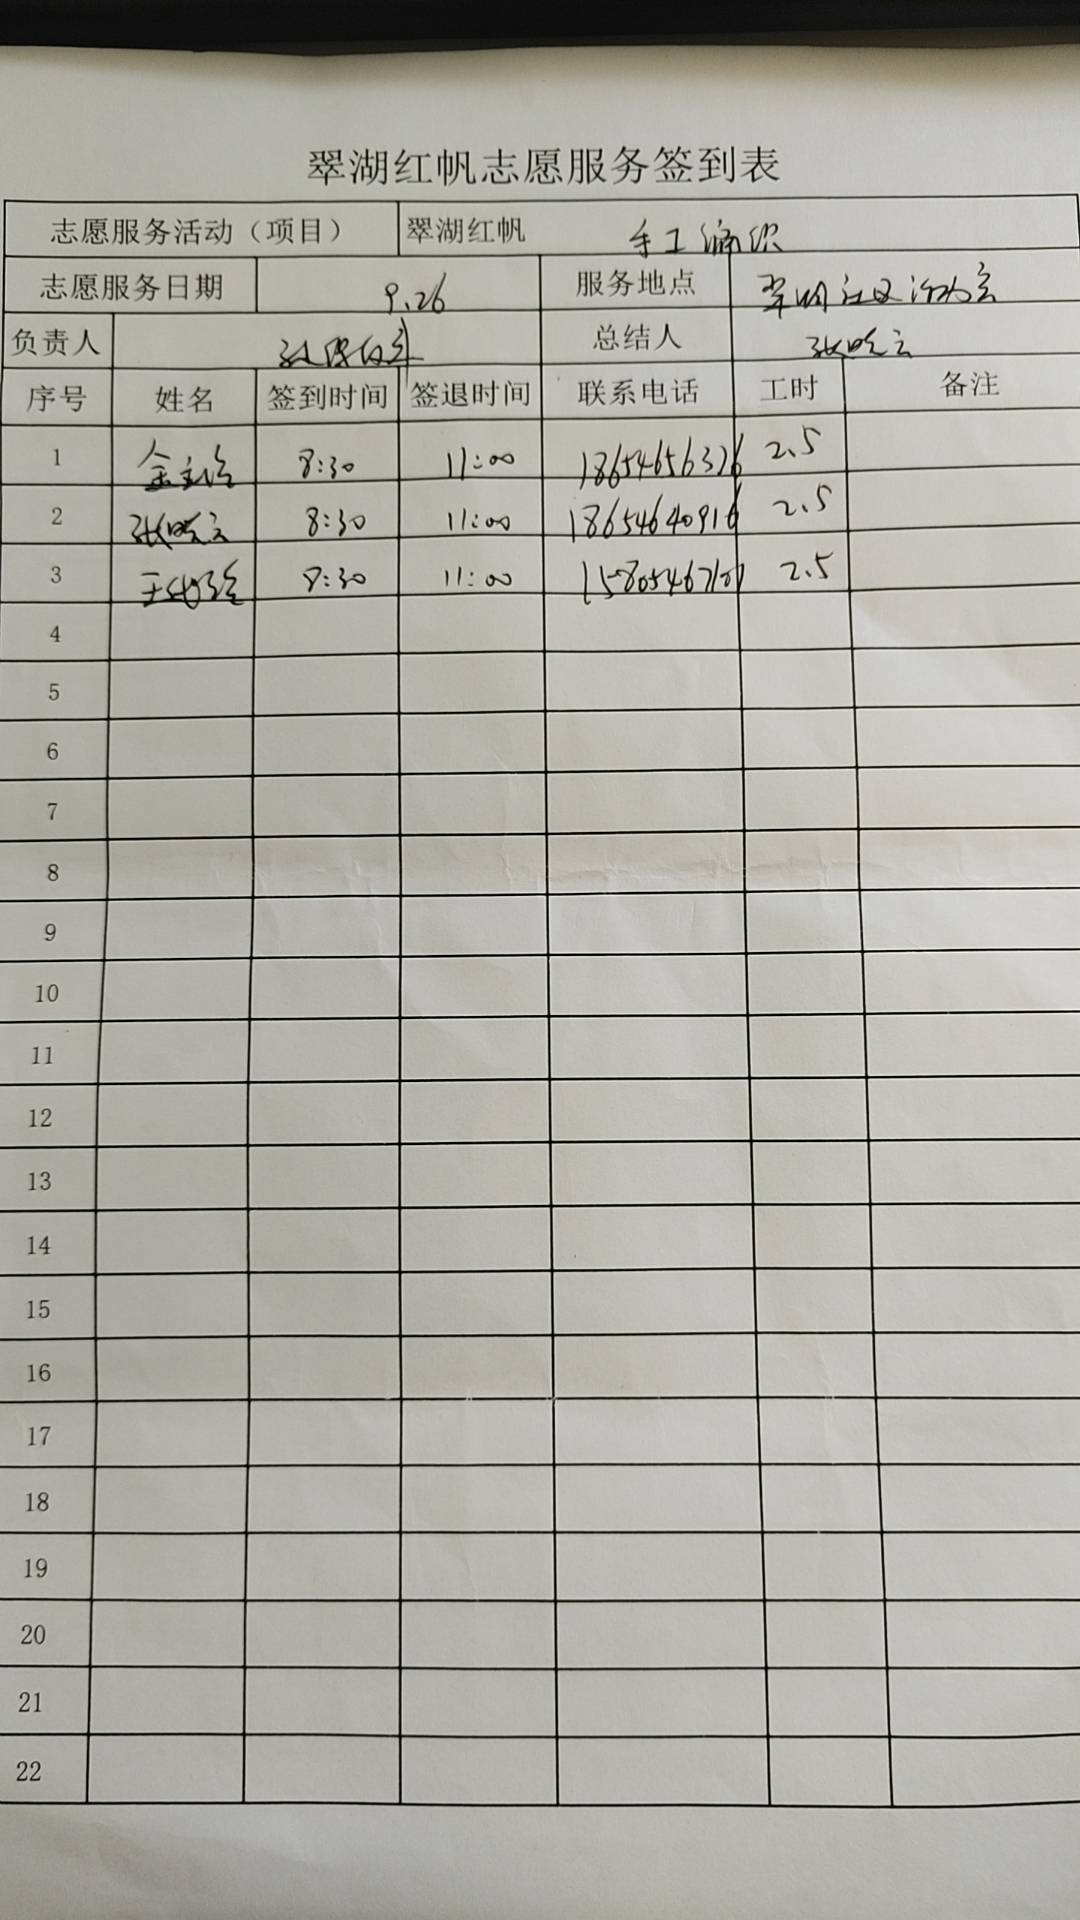 翠湖红帆志愿服务签到表
志愿服务活动（项目） 翠湖红帆 手工编织
志愿服务日期 9.26 服务地点 翠湖社区活动室
负责人 总结人 张晓云
序号 姓名 签到时间 签退时间 联系电话 工时 备注
1 8:30 11:00 18654656376 2.5
2 张晓云 8:30 11:00 18654640916 2.5
3 8:30 11:00 2.5
4
5
6
7
8
9
10
11
12
13
14
15
16
17
18
19
20
21
22